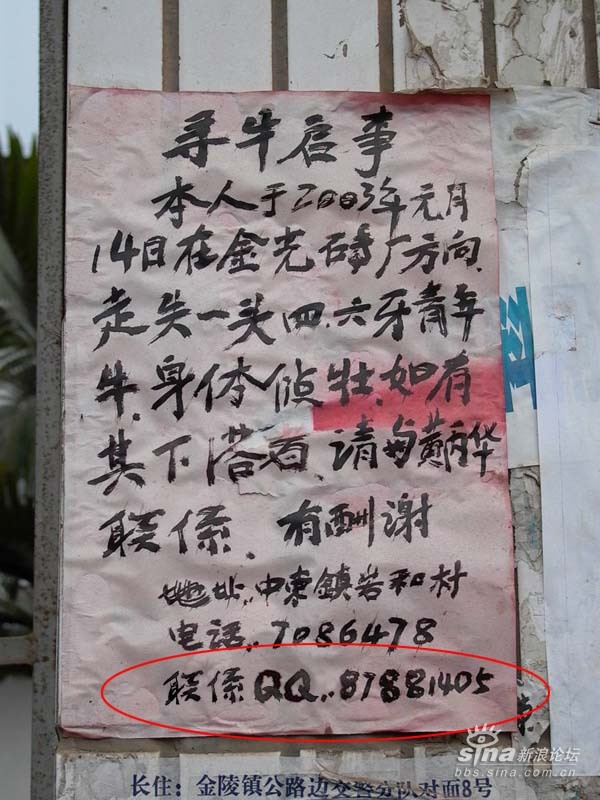 寻牛启事
本人于2003年元月
14日在金光砖厂方向.
走失一头四.六牙青年
牛.身体侦壮.如有
其下落者.请与黄丙华
联係.有酬谢
地址..中东鎮岩和村
电話..7086478
联係QQ..87881405
长住：金陵镇公路边交警分队对面8号
sina新浪论坛
bbs.sina.com.cn